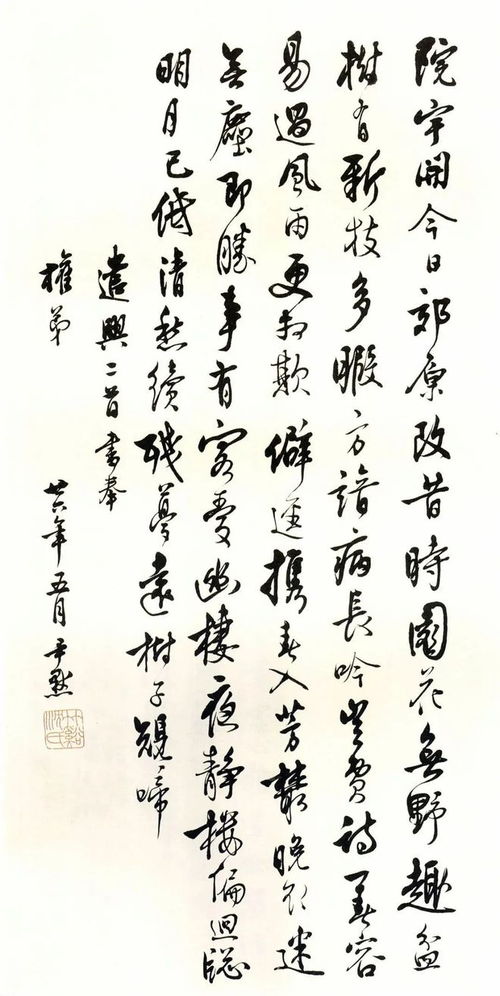 院宇開今日郊原改昔時園花無野趣盆
樹有新枝多暇方諳病長吟豈費詩一春容
易過風雨更相欺僻逕攜春入芳叢晚欲迷
無塵即勝事有客愛幽棲夜靜樓偏迥窗
明月已低清愁續殘夢遠樹子規啼
遣興二首書奉
權弟
廿六年五月尹默
竹谿沈氏